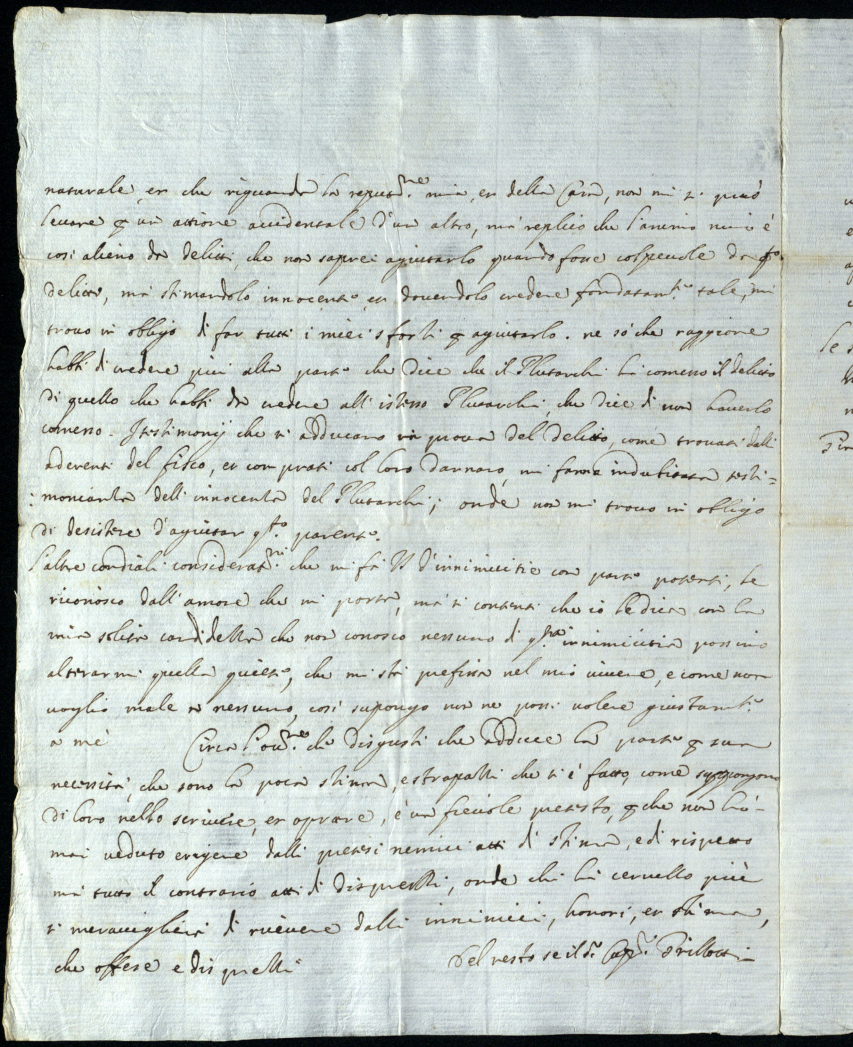 naturale, et che riguarda la reputne mia, et della Casa, non mi si può
levare p un attione accidentale d'un altro, mà replico che l'animo mio è
così alieno da delitti, che non saprei agiutarlo quando fosse colpevole da qto
delitto, mà stimandolo innocente, et dovendolo credere fondatamte tale, mi
trovo in obligo di far tutti i miei sforti p agiutarlo. ne sò che raggione
habbi di credere più alla parte che dice che il Plutarchi hà comesso il delitto
di quello che habbi da credere all'istesso Plutarchi, che dice di non haverlo
comesso. I testimonij che si adducano in prova del delitto, come trovati dalli
aderenti del fisco, et comprati col loro danaro, mi fanno indubitata testi=
:monianza dell'innocenza del Plutarchi; onde non mi trovo in obligo
di desistere d'agiutar qto parente.
L'altre cordiali consideratni che mi fà V d'innimicitie con parte potenti, le
riconosco dall'amore che mi porta, mà si contenti che io le dica con la
mia solita candidezza che non conosco nessuno di qta innimicitia possino
alterarmi quella quiete, che mi stà prefissa nel mio vivere, e come non
voglio male a nessuno, così supongo non ne possi volere giustamte
a mè Circa l' de disgusti che adduce la parte p sua
necessità, che sono la poca stima, e strapazzi che si è fatto, come suppongono
di loro nello scrivere, et oprare, è un frivole pretesto, p che non hò
mai veduto erigere dalli pretesi nemici atti di stima, e di rispetto
mà tutto il contrario atti di disprezzi, onde chi hà cervello più
si meraviglierà di ricevere dalli innimici, honori, et stima,
che offese e disprezzi Del resto se il Sr Capn Trillotti